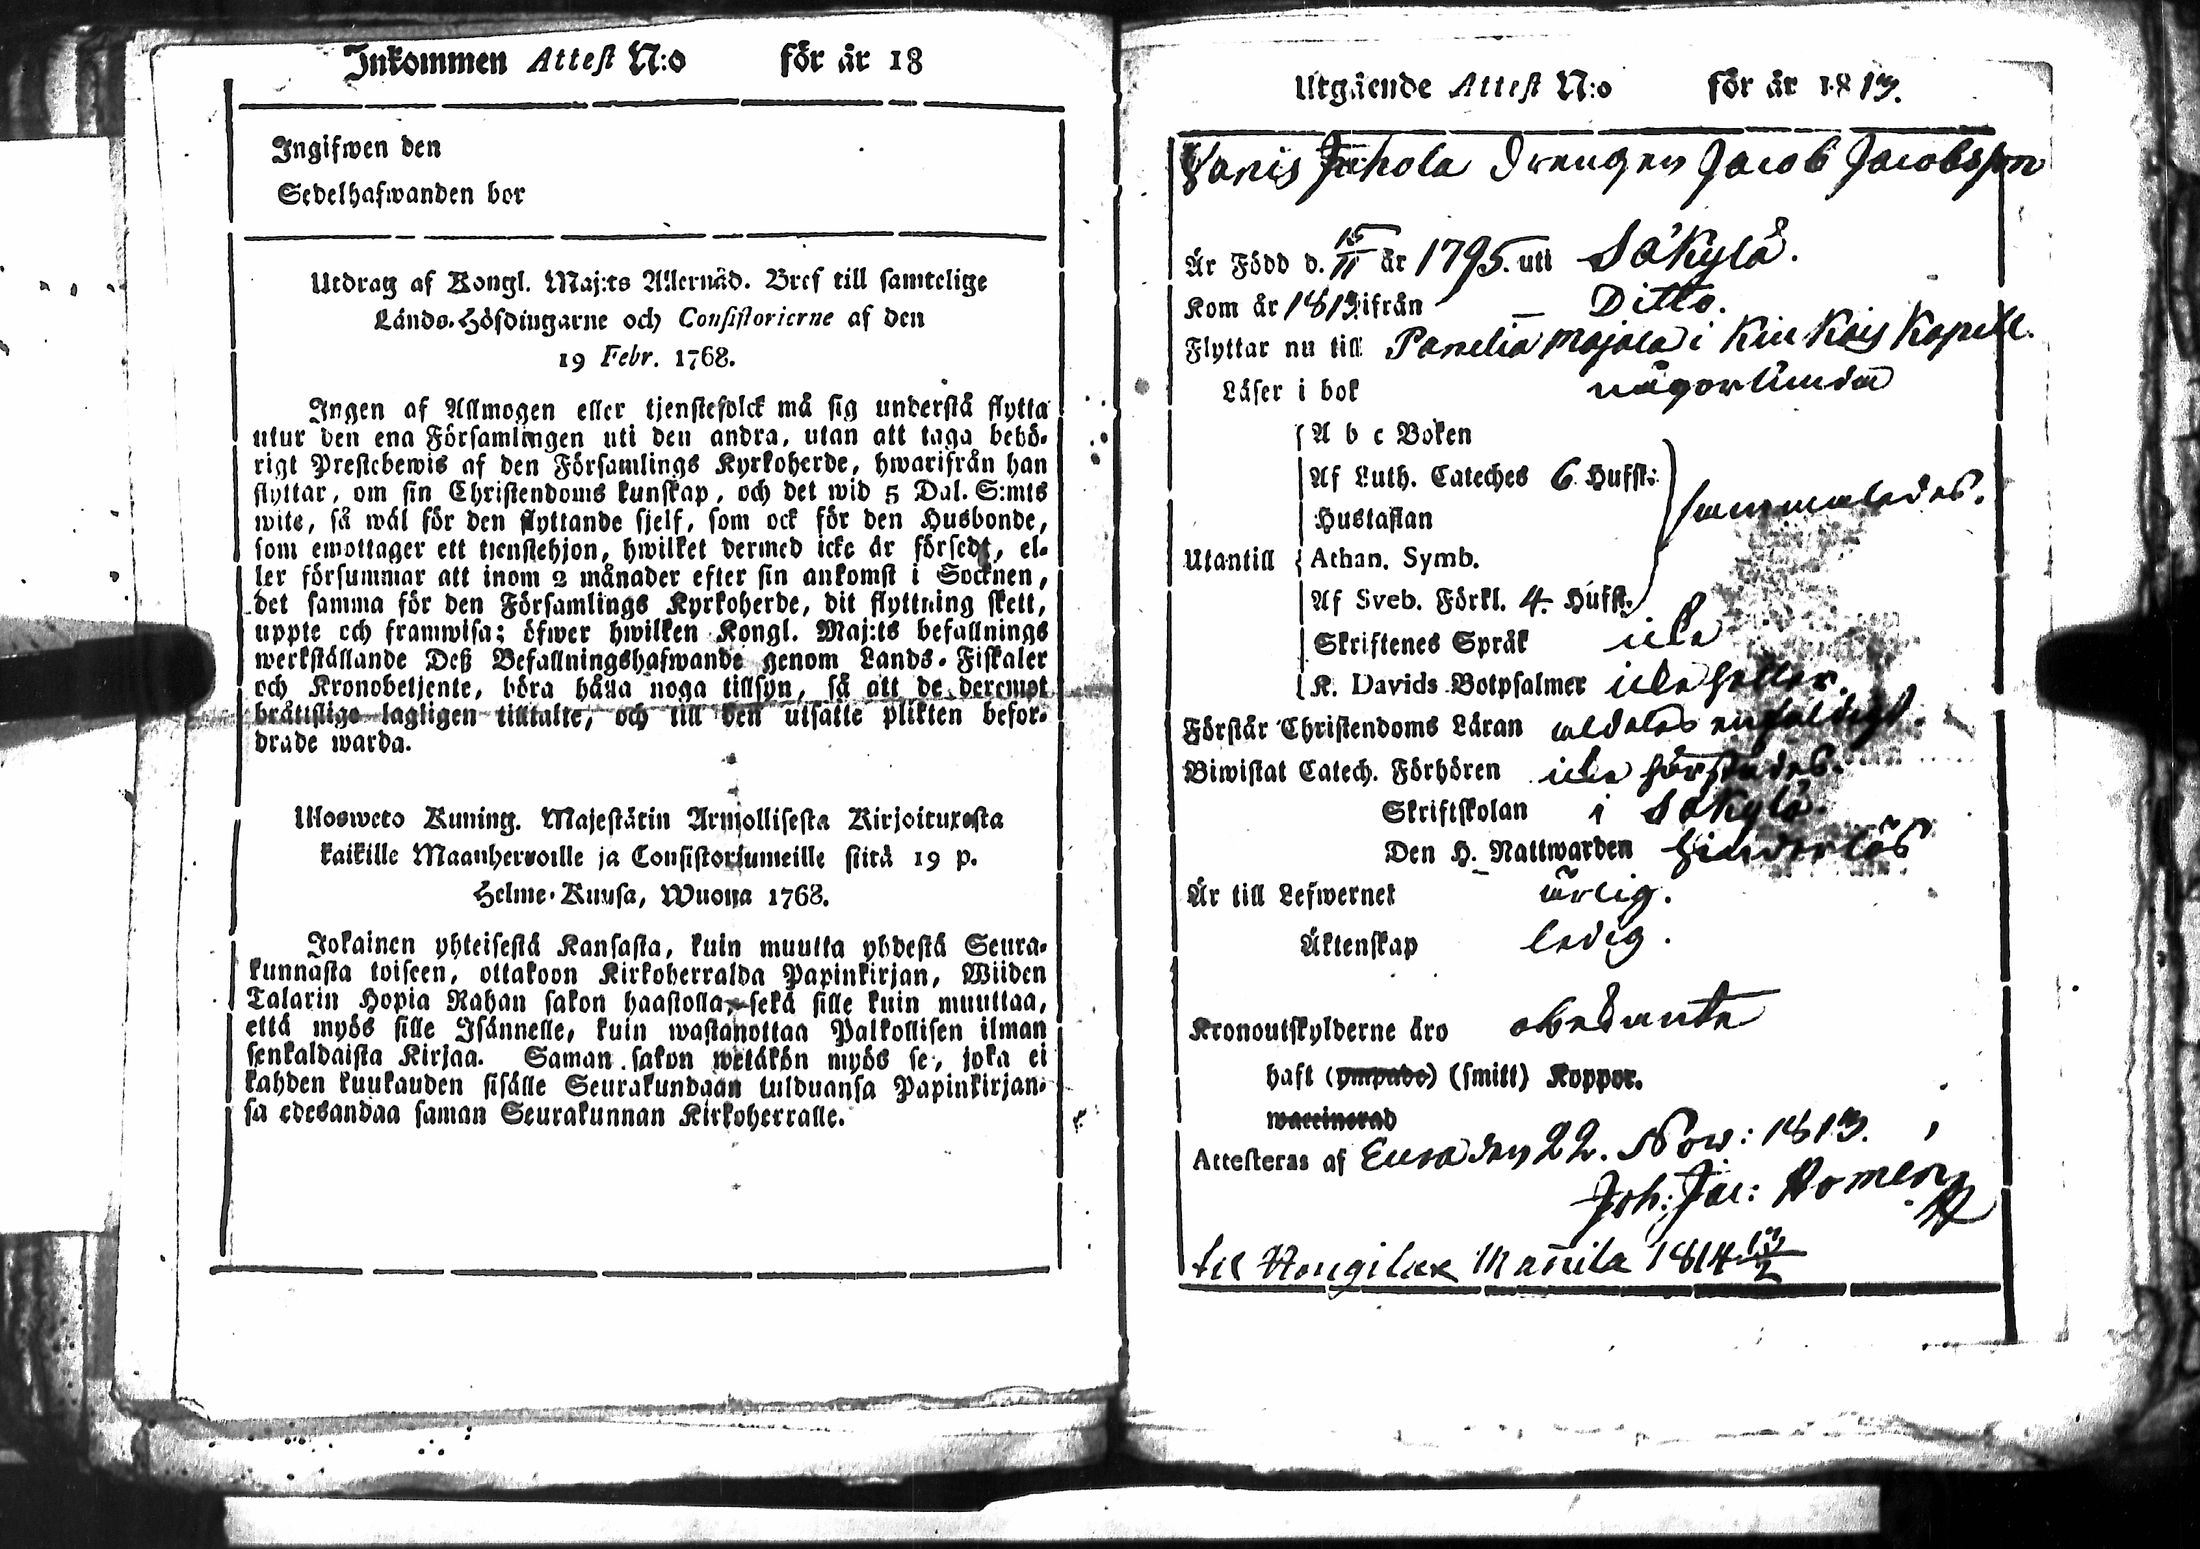 Inkommen Attest N:o för år 18
Ingifwen den
Sedelhafwanden bor
Utdrag af Kongl. Maj:ts Allernåd. Bref till samtelige
Lands-Höfdingarne och Consistorierne af den
19 Febr. 1768.
Ingen af Allmogen eller tjenstefolck må sig understå flytta
utur den ena Församlingen uti den andra, utan att taga behö-
rigt Prestebewis af den Församlings Kyrkoherde, hwarifrån han
flyttar, om sin Christendoms kunskap, och det wid 5 Dal. S:mts
wite, så wäl för den flyttande sjelf, som ock för den Husbonde,
som emottager ett tienstehjon, hwilket dermed icke är försedt, el-
ler försummar att inom 2 månader efter sin ankomst i Socknen,
det samma för den Församlings Kyrkoherde, dit flyttning skett,
uppte och framwisa; öfwer hwilken Kongl. Maj:ts befallnings
werkställande Deß Befallningshafwande genom Lands-Fiskaler
och Kronobetjente, böra hålla noga tillsyn, så att de deremot
bråttslige lagligen tilltalte, och till den utsatte plikten befor-
drade warda.
Ulosweto Kuning. Majestätin Armollisesta Kirjoituxesta
kaikille Maanherroille ja Consistoriumeille siitä 19 p.
Helme-Kuusa, Wuonna 1768.
Jokainen yhteisestä Kansasta, kuin muutta yhdestä Seura-
kunnasta toiseen, ottakoon Kirkoherralda Papinkirjan, Wiiden
Talarin Hopia Rahan sakon haastolla, sekä sille kuin muuttaa,
että myös sille Isännelle, kuin wastanottaa Palkollisen ilman
senkaldaista Kirjaa. Saman sakon wetäkön myös se, joka ei
kahden kuukauden sisälle Seurakundaan tulduansa Papinkirjan-
sa edesandaa saman Seurakunnan Kirkoherralle.
Utgående Attest N:o för år 1813.
Drengen Jacob Jacobsson
Är Född d. 15/11 år 1795. uti Säkylä.
Kom år 1813 ifrån — Ditto.
Flyttar nu till Panelia Majala i Kiukais Kapell.
Läser i bok någorlunda
A b c Boken
Af Luth. Cateches 6 Hufst:
Hustaflan
sammaledes.
Utantill Athan. Symb.
Af Sveb. Förkl. 4. Hufst.
Skriftenes Språk icke
K. Davids Botpsalmer icke heller.
Förstår Christendoms Läran aldeles enfaldigt.
Biwistat Catech. Förhören icke härstädes.
Skriftskolan i Säkylä.
Den H. Nattwarden hinderlös
Är till Lefwernet ärlig.
Äktenskap ledig.
Kronoutskylderne äro obekante
haft (ympade) (smitt) Koppor.
waccinerad
Attesteras af Eura den 22. Nov: 1813.
Joh: Jac: Homen
til Hongilax Mannila 1814 13/2